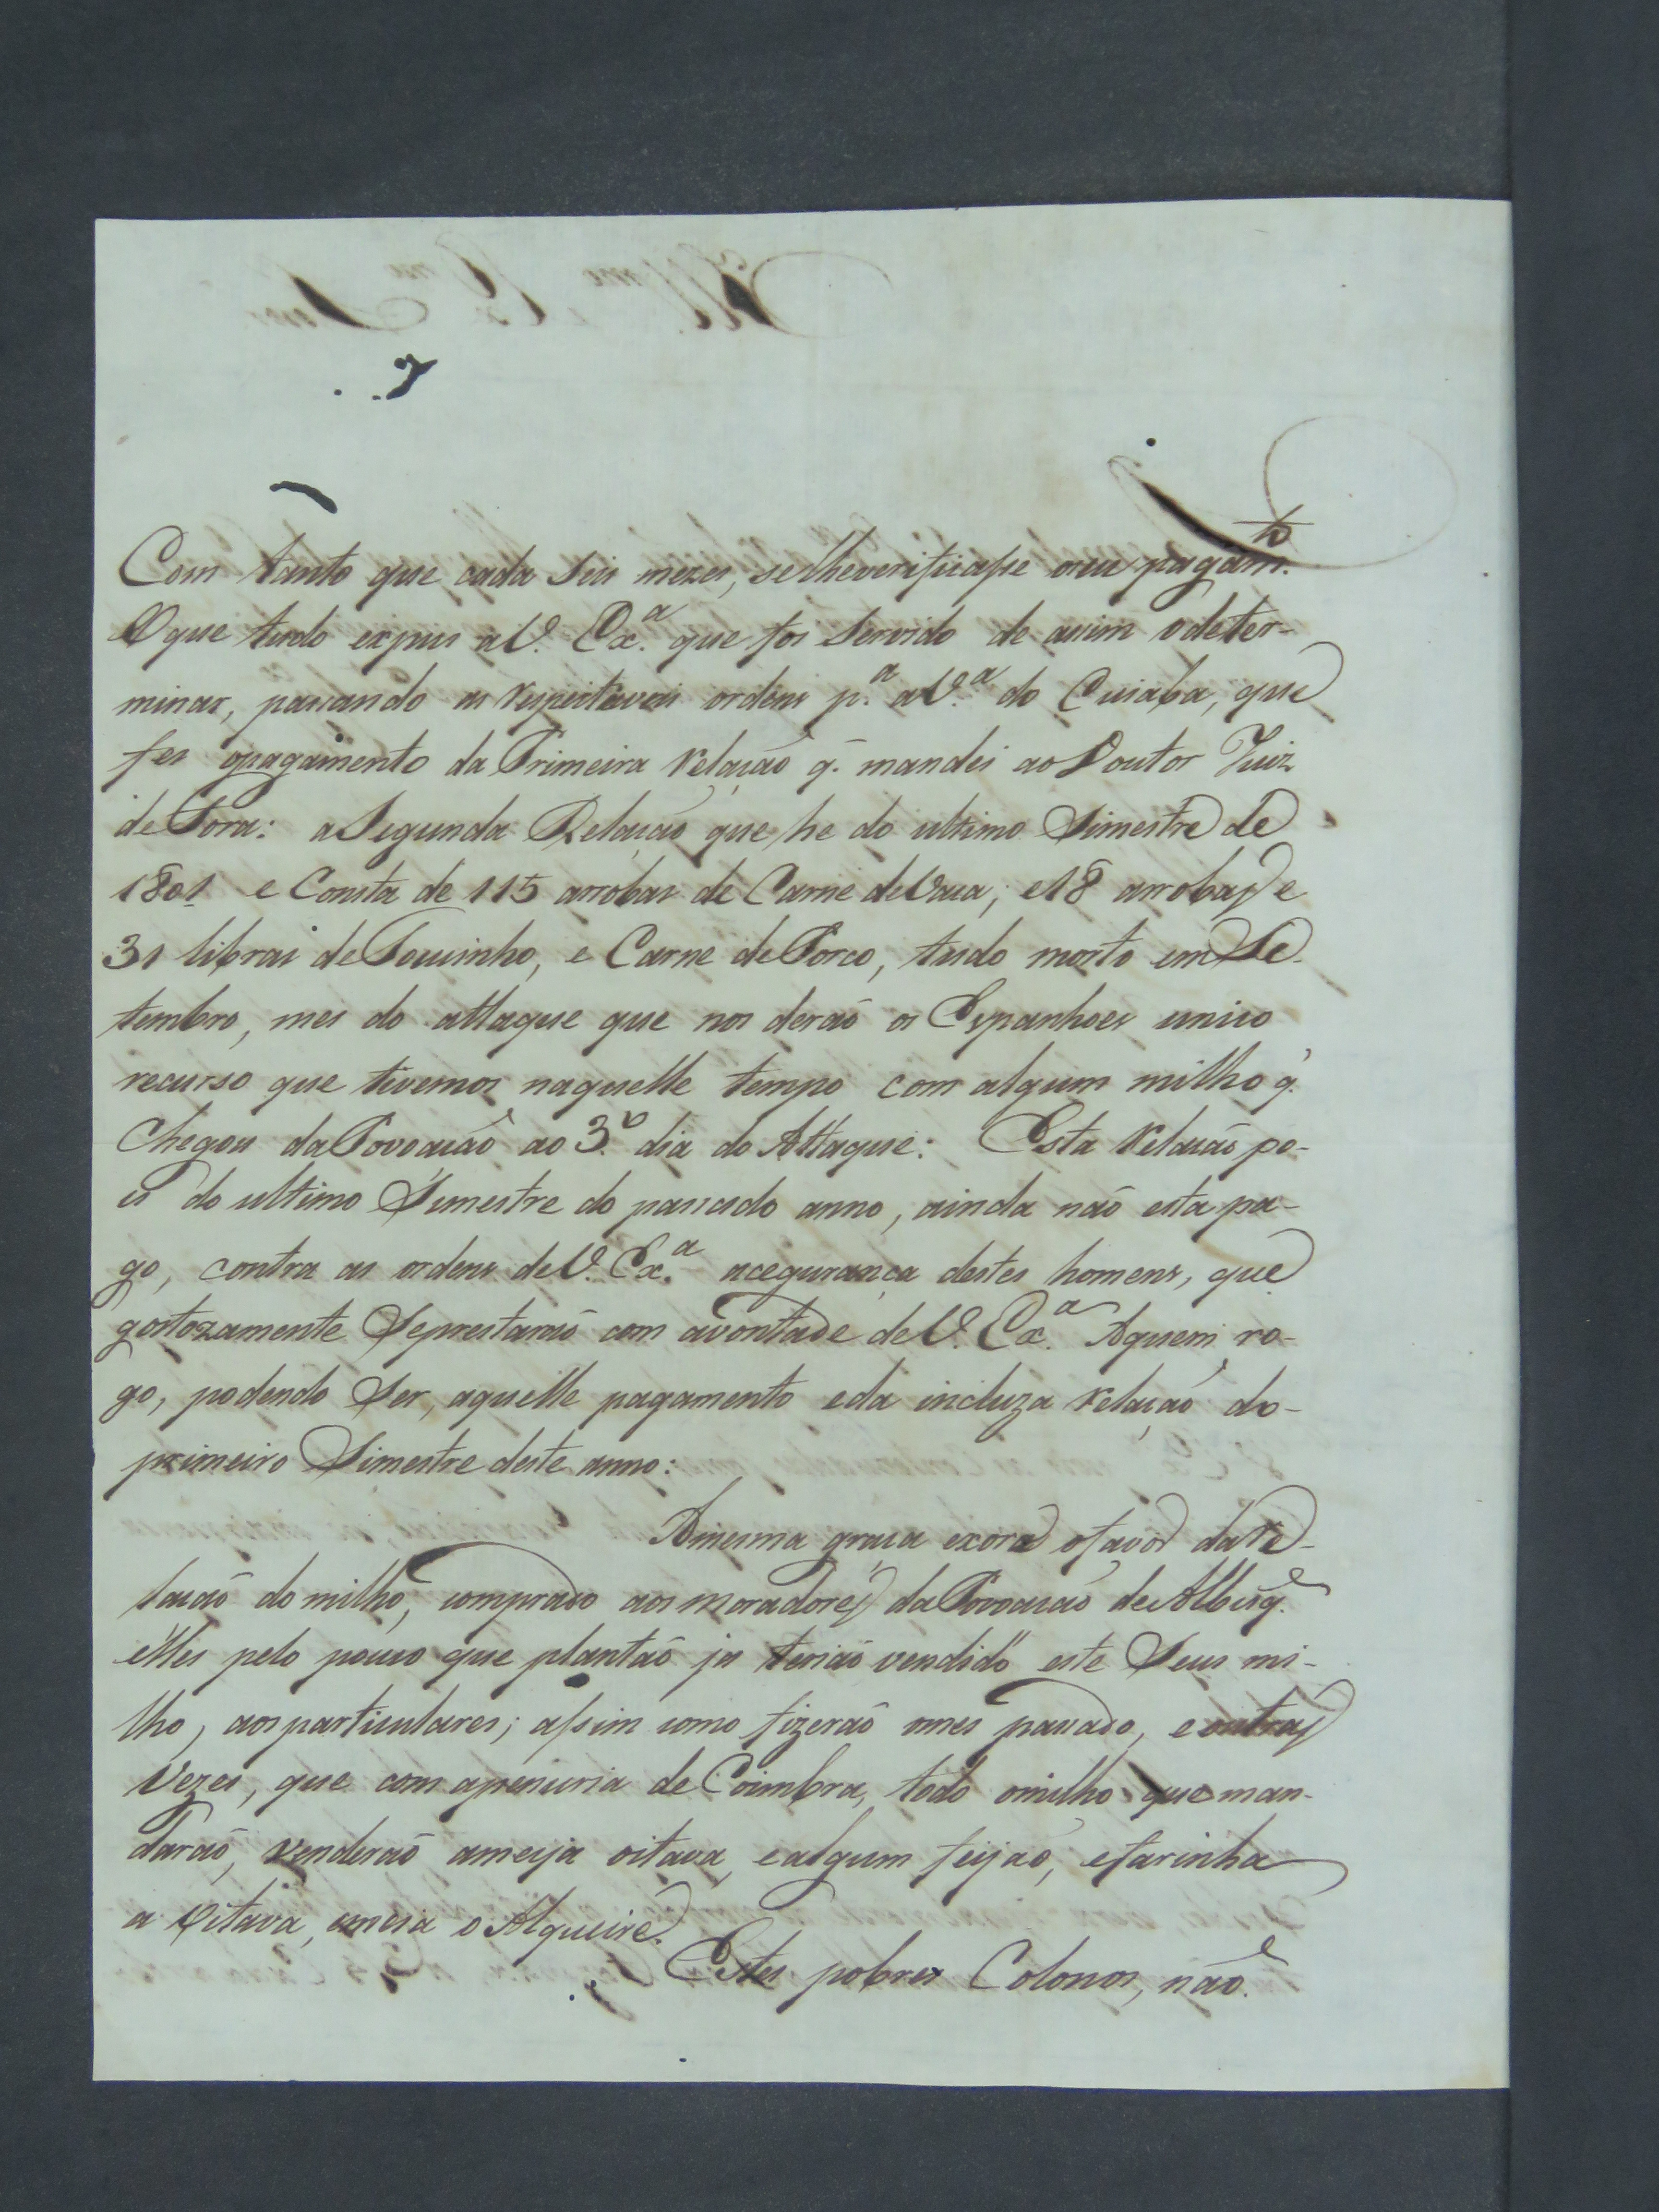 Com tanto que cada seis mezes, se lhe verificasse oseu pagam.to
O que tudo expus a V. Ex.a que foi servido de assim o deter-
minar, passando as respectivas ordens p.a a V.a do Cuiaba, que
fes opagamento da Primeira relação q. mandei ao Doutor Juiz
de Fora: a Segunda Relação que he do ultimo Simestre de
1801 e Consta de 115 arrobas de Carne de Vaca; e 18 arrobas e
31 libras de Toucinho, e Carne de Porco, tudo morto em Se-
tembro, mes do attaque que nos derão os Espanhoes unico
recurso que tivemos naquelle tempo com algum milho q.
Chegou da Povoação ao 3.o dia do Attaque: Esta relação po-
is do ultimo Simestre do passado anno, ainda não esta pa-
go, contra as ordens de V. Ex.a acegurança destes homens, que
gostozamente Seprestarão com avontade de V. Ex.a Aquem ro-
go, podendo Ser, aquelle pagamento eda incluza relação do-
primeiro Simestre deste anno:
Amesma graça exora ofavor da re-
lação do milho, comprado aos moradores da Povoação de Albuq.e
elles pelo pouco que plantão ja terião vendido este Seus mi-
lho, aos particulares; assim como fizerão omes passado, e outras
Vezes, que com apenuria de Coimbra, todo omilho que man-
darão, venderão ameya oitava, e algum feijão, efarinha
a Oitava, emeia o Alqueire.
Estes pobres Colonos, não.